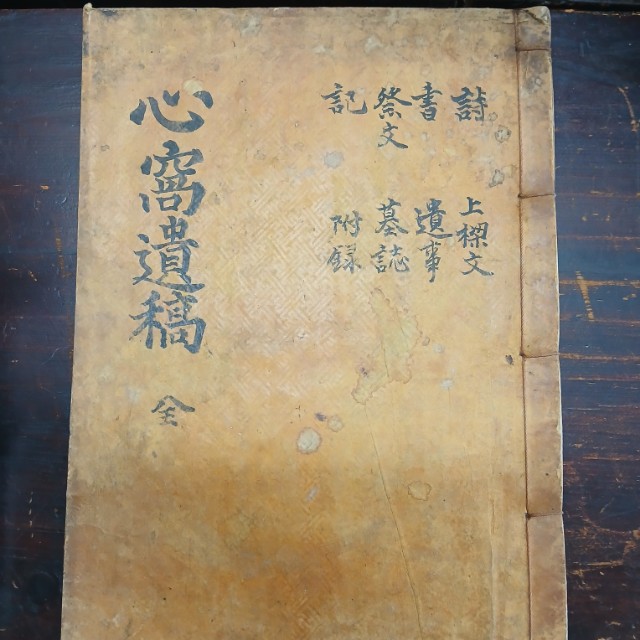 詩 上樑文
書 遺事
祭文 墓誌
記 附錄
心窩遺稿 全